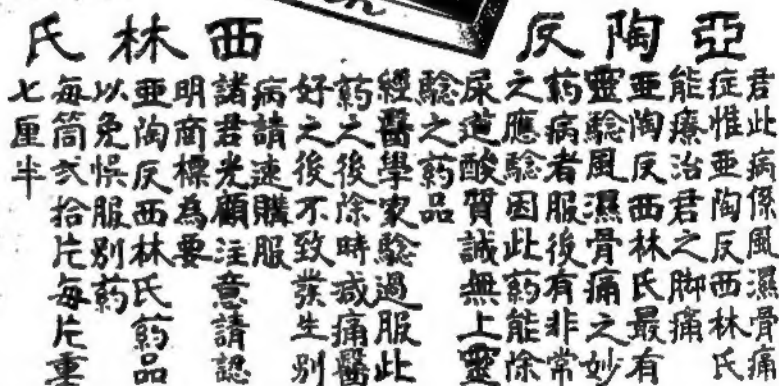 亞陶反西林氏
君此病係風濕骨痛
症惟亞陶反西林氏
能療治君之脚痛
亞陶反西林氏最有
靈驗風濕骨痛之妙
葯病者服後有非常
之應驗因此葯能除
尿道酸質誠無上靈
驗之葯品
經醫學家驗過服此
葯之後除時減痛醫
好之後不致發生別
病請速購服
諸君光顧注意請認
明商標為要
亞陶反西林氏葯品
以免悞服別葯
每筒弍拾片每片重
七厘半